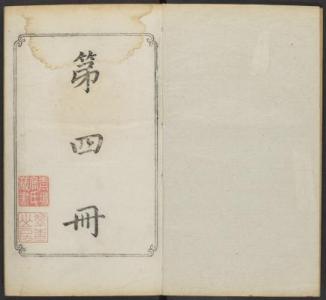 第四冊